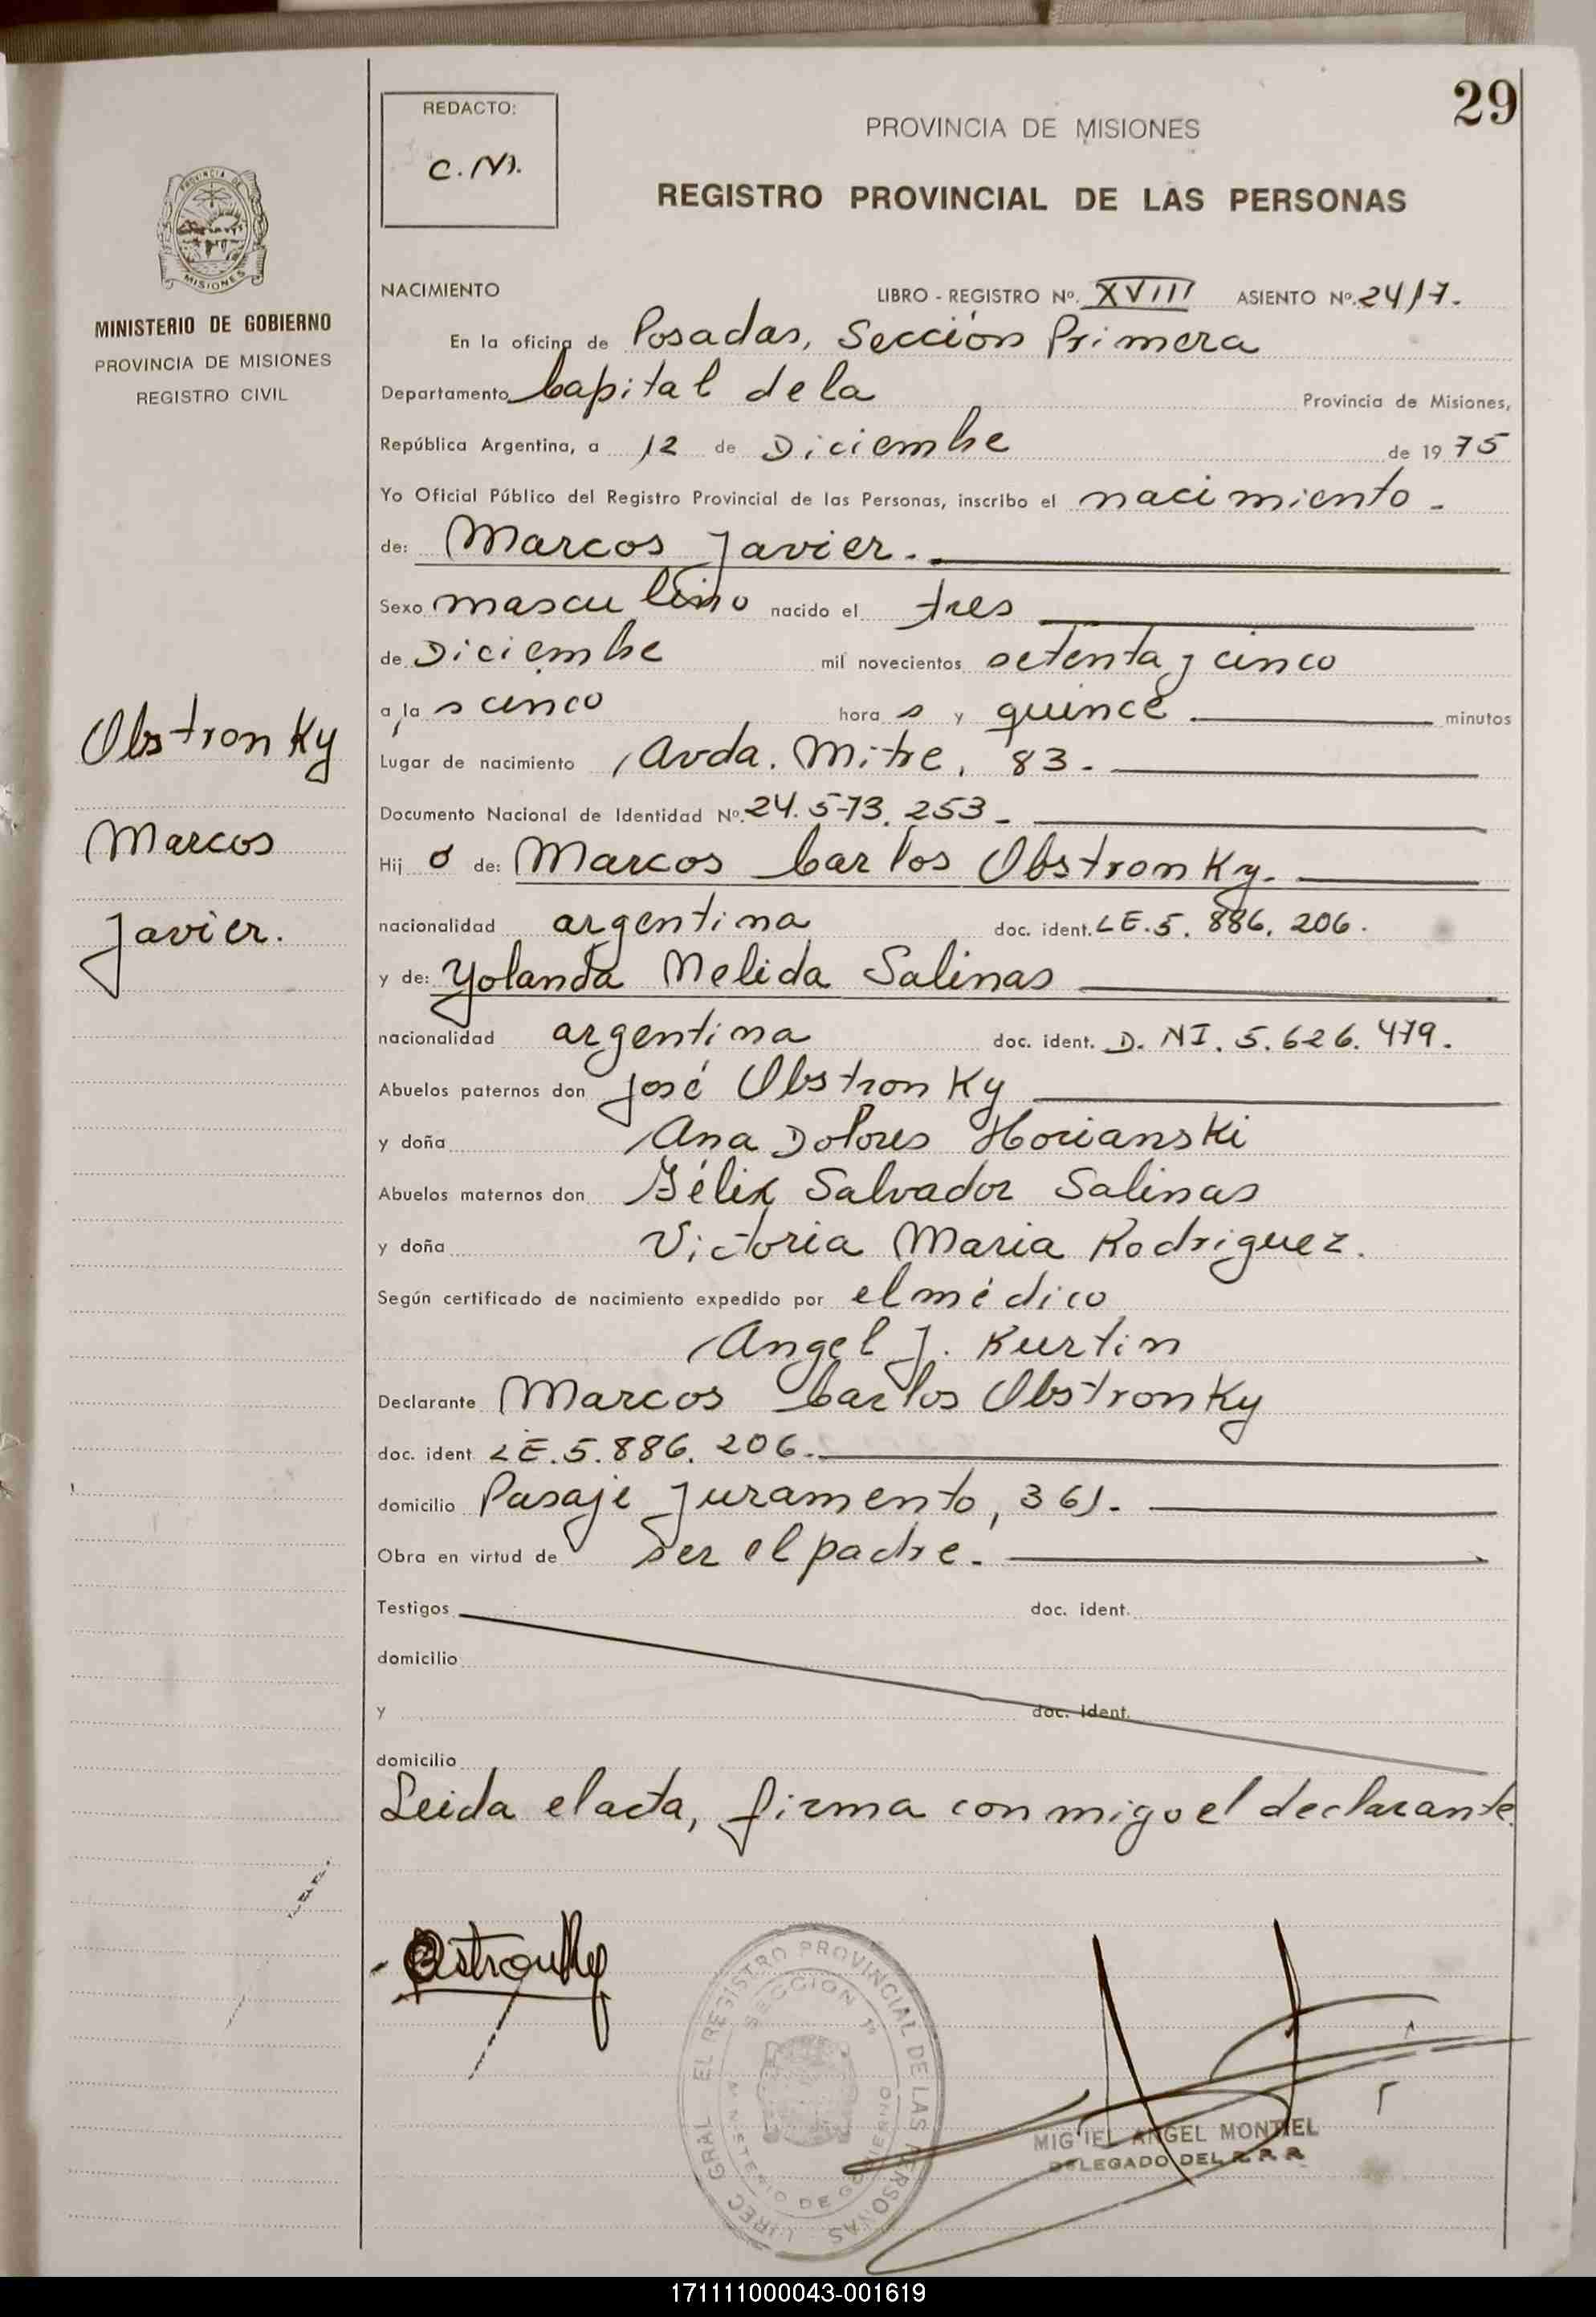 29
REDACTO:
C.M.
PROVINCIA DE MISIONES
REGISTRO PROVINCIAL DE LAS PERSONAS
PROVINCIA DE
MISIONES
MINISTERIO DE GOBIERNO
PROVINCIA DE MISIONES
REGISTRO CIVIL
Obstronky
Marcos
Javier.
NACIMIENTO LIBRO - REGISTRO Nº. XVIII ASIENTO Nº. 2417.
En la oficina de Posadas, Sección Primera
Departamento Capital de la Provincia de Misiones,
República Argentina, a 12 de Diciembre de 1975
Yo Oficial Público del Registro Provincial de las Personas, inscribo el nacimiento.
de: Marcos Javier.
Sexo masculino nacido el tres
de Diciembre mil novecientos setenta y cinco
a las cinco horas y quince minutos
Lugar de nacimiento Avda. Mitre, 83.
Documento Nacional de Identidad Nº. 24.573.253
Hijo de: Marcos Carlos Obstronky.
nacionalidad argentina doc. ident. LE.5.886.206.
y de: Yolanda Melida Salinas
nacionalidad argentina doc. ident. D.NI.5.626.479.
Abuelos paternos don José Obstronky
y doña Ana Dolores Horianski
Abuelos maternos don Félix Salvador Salinas
y doña Victoria Maria Rodriguez.
Según certificado de nacimiento expedido por el médico
Angel J. Kurtin
Declarante Marcos Carlos Obstronky
doc. ident LE.5.886.206.
domicilio Pasaje Juramento, 361.
Obra en virtud de ser el padre.
Testigos doc. ident.
domicilio
y doc. ident.
domicilio
Leida el acta, firma conmigo el declarante.
Ostronky
EL REGISTRO PROVINCIAL DE LAS PERSONAS
SECCION 1ª
MINISTERIO DE GOBIERNO
MIGUEL ANGEL MONTIEL
DELEGADO DEL R.P.P.
171111000043-001619